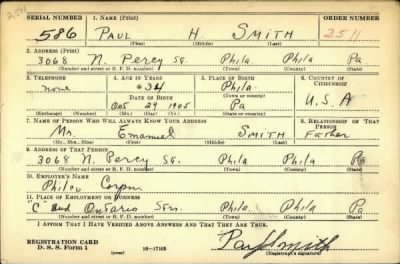 2511
SERIAL NUMBER 1. NAME (Print) ORDER NUMBER
586 PAUL H. SMITH 2511
(First) (Middle) (Last)
2. ADDRESS (Print)
3068 N. Percy St. Phila Phila Pa
(Number and street or R. F. D. number) (Town) (County) (State)
3. TELEPHONE 4. AGE IN YEARS 5. PLACE OF BIRTH 6. COUNTRY OF CITIZENSHIP
none 34 Phila.
DATE OF BIRTH (Town or county)
Oct 29 1905 Pa U.S.A
(Exchange) (Number) (Mo.) (Day) (Yr.) (State or country)
7. NAME OF PERSON WHO WILL ALWAYS KNOW YOUR ADDRESS 8. RELATIONSHIP OF THAT PERSON
Mr. Emanuel SMITH Father
(Mr., Mrs., Miss) (First) (Middle) (Last)
9. ADDRESS OF THAT PERSON
3068 N. Percy St. Phila Phila Pa
(Number and street or R. F. D. number) (Town) (County) (State)
10. EMPLOYER'S NAME
Philco Corpn.
11. PLACE OF EMPLOYMENT OR BUSINESS
"C" and Ontario Sts. Phila Phila Pa
(Number and street or R. F. D. number) (Town) (County) (State)
I AFFIRM THAT I HAVE VERIFIED ABOVE ANSWERS AND THAT THEY ARE TRUE.
REGISTRATION CARD
D. S. S. Form 1 (over) 16—17105 Paul Smith
(Registrant's signature)